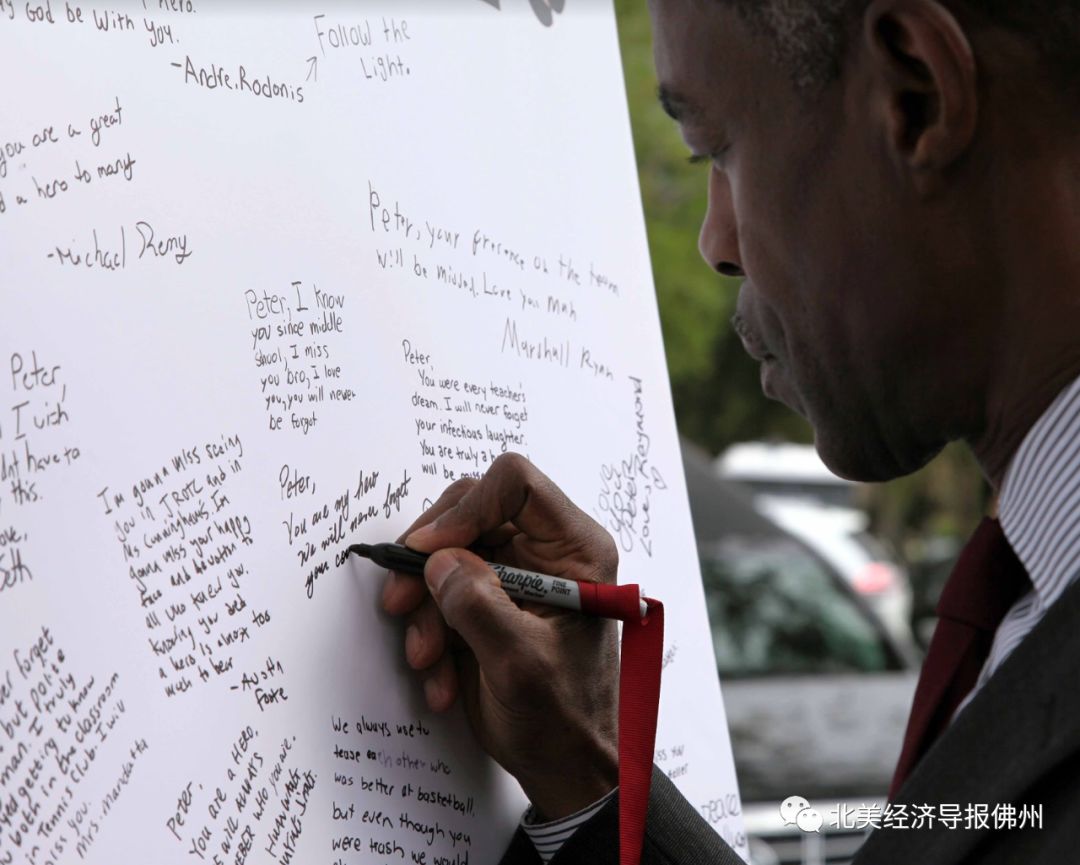 God be With you.
-Andre.Rodonis
Follow the
Light.
you are a great
a hero to many
-Michael Remy
Peter, your presence on the team
will be missed. Love you man
Marshall Ryan
Peter, I know
you since middle
school, I miss
you bro, I love
you, you will never
be forgot
Peter,
You were every teacher's
dream. I will never forget
your infectious laughter.
You are truly a
will be
Peter,
I wish
have to
this.
Love,
Seth
I'm gonna miss seeing
you in JROTC and in
Ms Cunninghams, Im
gonna miss your happy
face and devotion to
all who knew you.
Knowing you died
a hero is almost too
much to bear
-Austin
Foote
Peter,
You are my hero
We will never forget
your co
Love
you
Peter
Love, Raymond
Sharpie.
FINE
POINT
forget
but polite
man. I truly
getting to know
both in the classroom
in Tennis club. I will
miss you.
Mrs
Peter,
You are a HERO.
WHAT'S
WHO you are.
We always use to
tease each other who
was better at basketball,
but even though you
were trash we would
peace
北美经济导报佛州